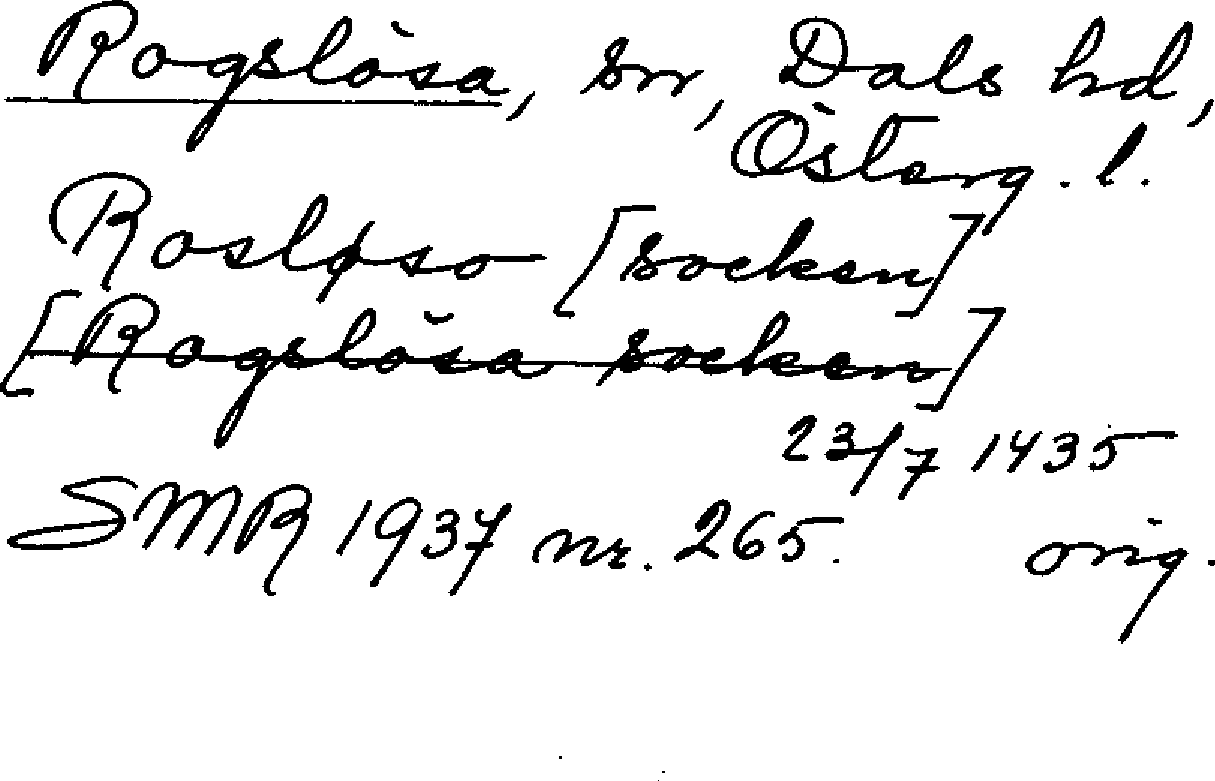 Rogslösa, sn, Dals hd,
Österg. l.
Rosløso [socken]
[Rogslösa socken]
23/7 1435
SMR 1937 nr. 265. orig.